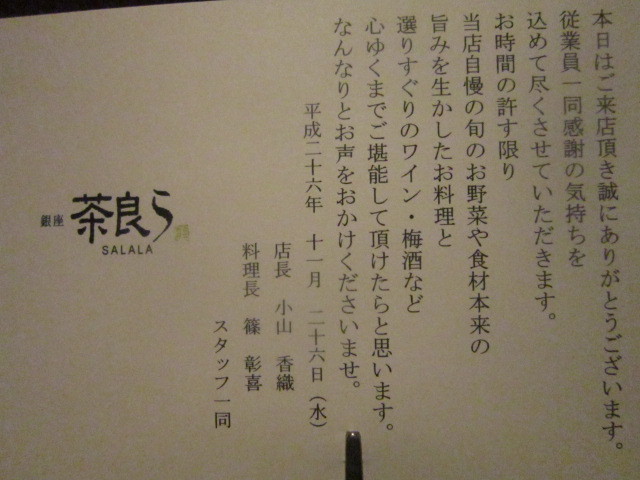 本日はご来店頂き誠にありがとうございます。
従業員一同感謝の気持ちを
込めて尽くさせていただきます。
お時間の許す限り
当店自慢の旬のお野菜や食材本来の
旨みを生かしたお料理と
選りすぐりのワイン・梅酒など
心ゆくまでご堪能して頂けたらと思います。
なんなりとお声をおかけくださいませ。
平成二十六年 十一月 二十六日（水）
店長 小山 香織
料理長 篠 彰喜
スタッフ一同
銀座 茶良ら
SALALA